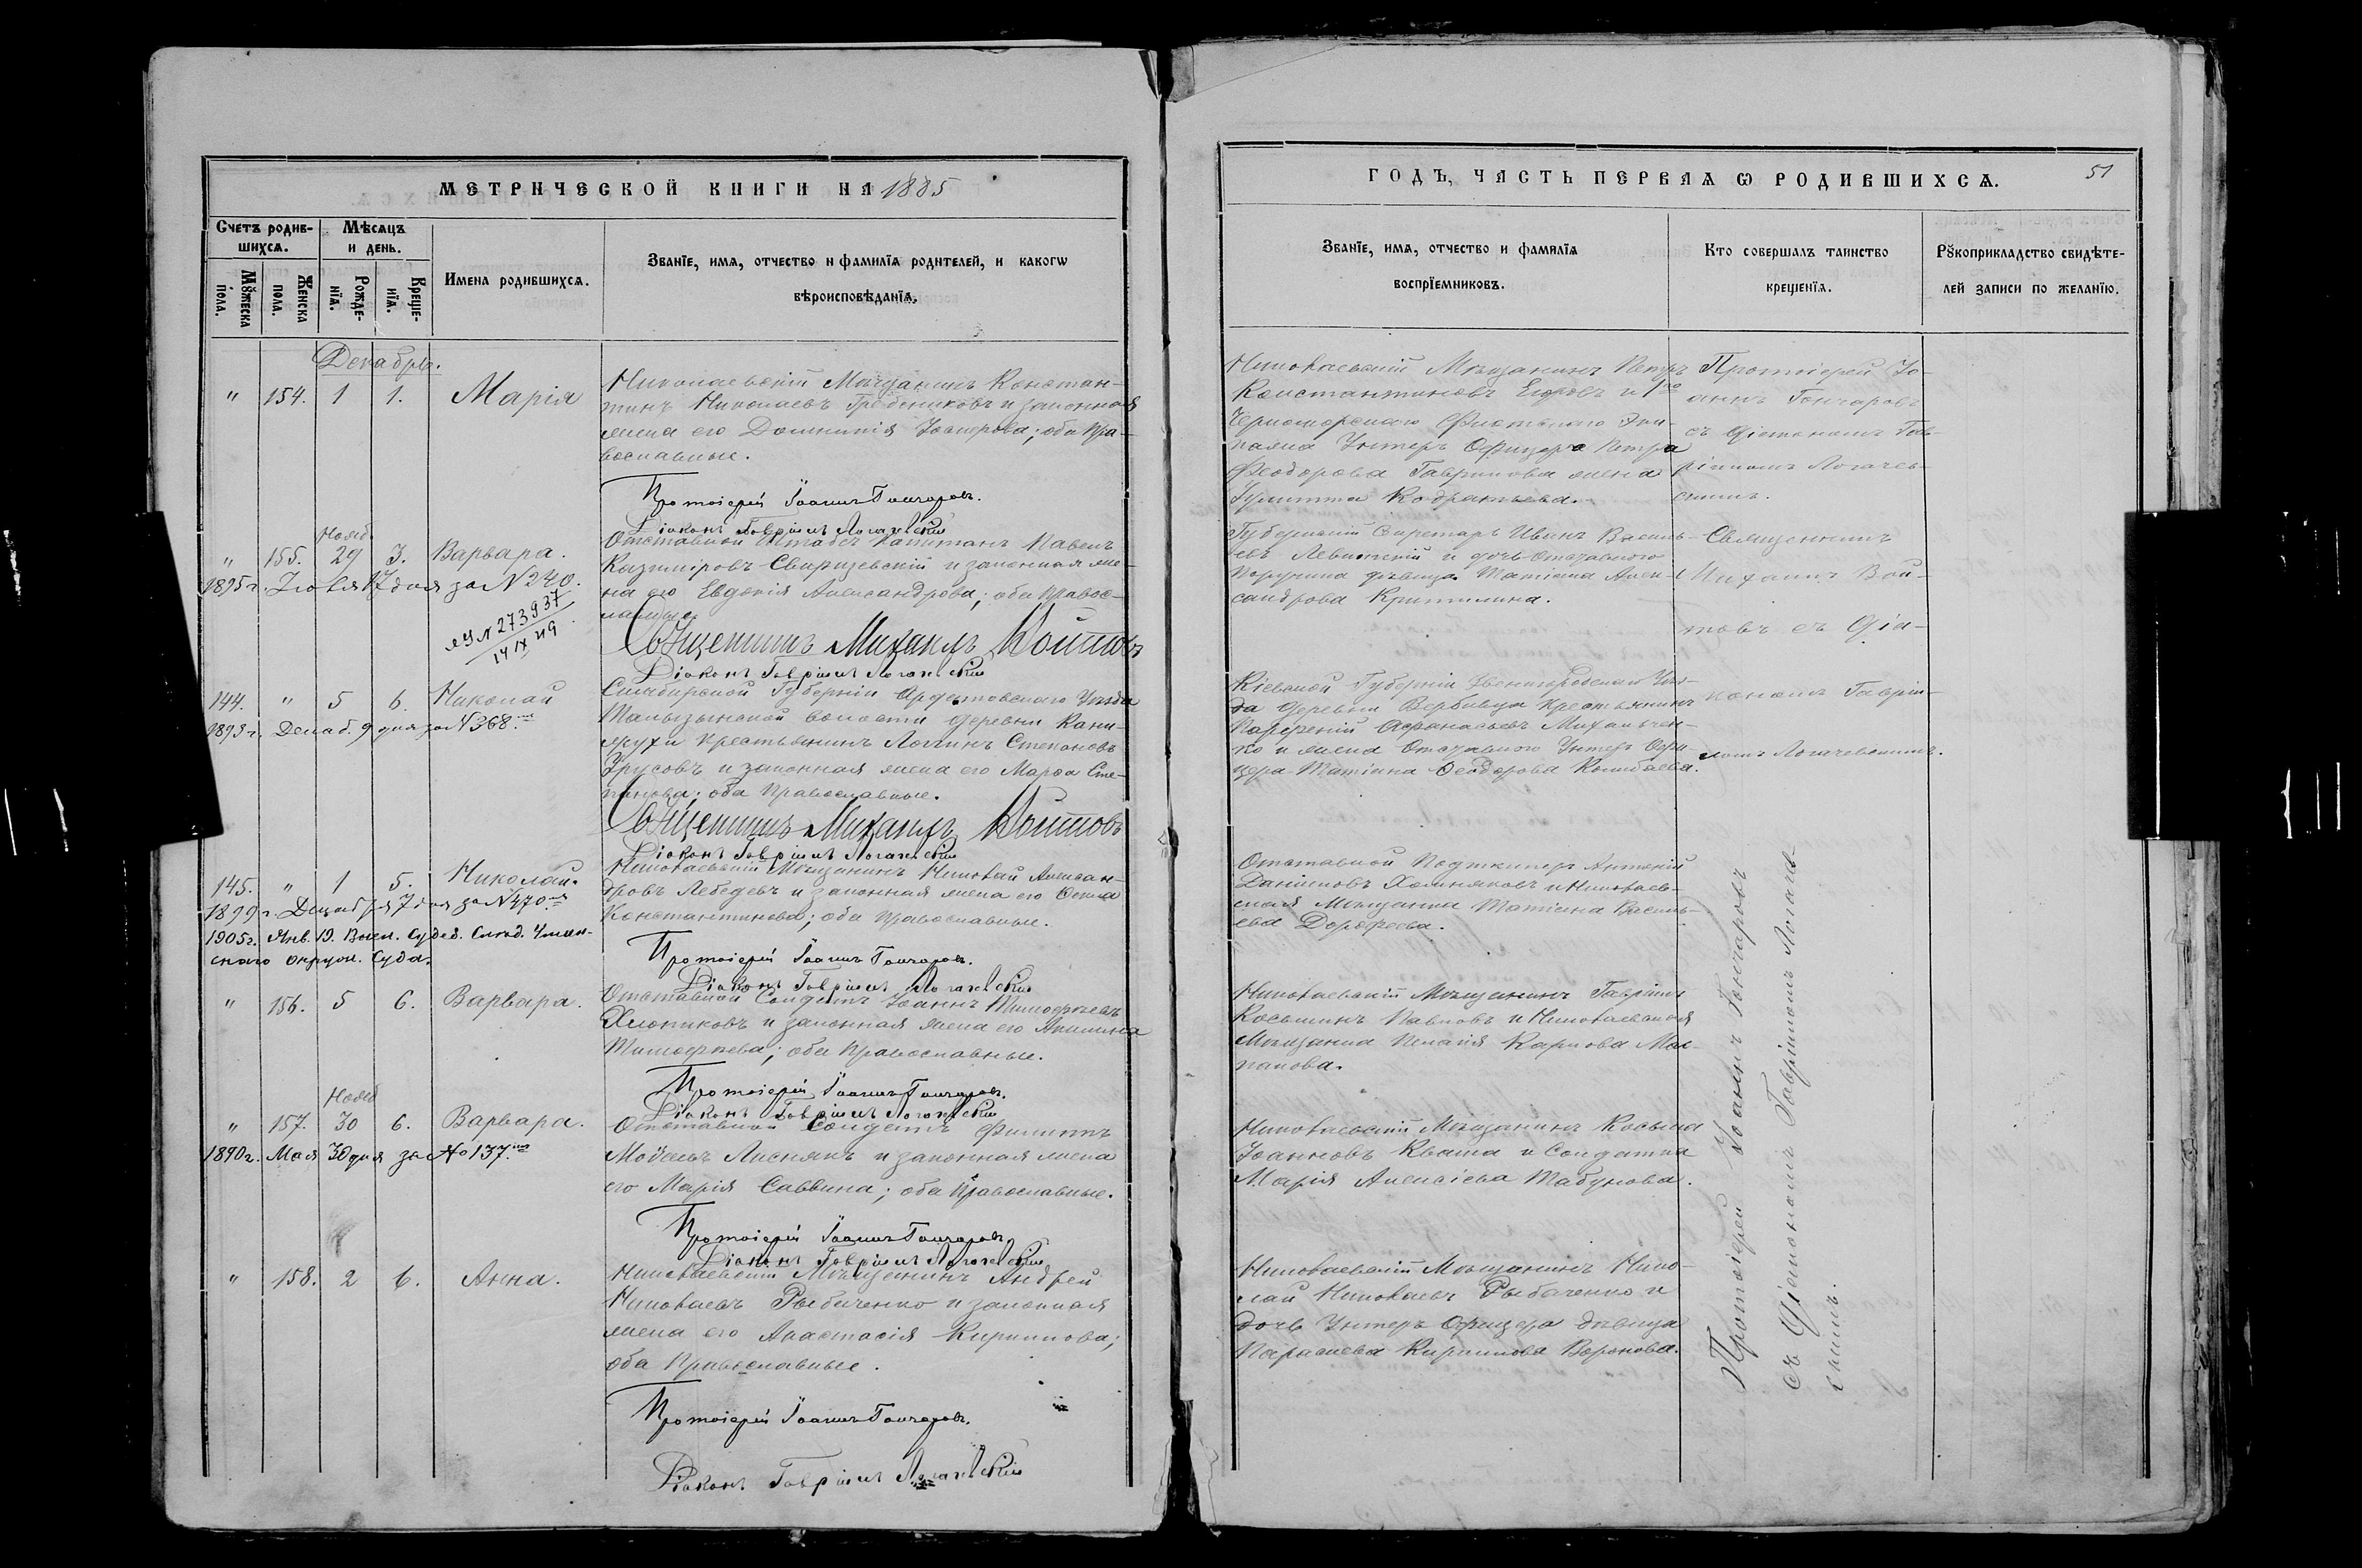 МЕТРИЧЕСКОЙ КНИГИ НА 1885
Счетъ родив-
шихся.
Мѣсяцъ
и день.
Мужеска
пола.
Женска
пола.
Рожде-
нїя.
Креще-
нїя.
Имена родившихся.
Званїе, имя, отчество и фамилїя родителей, и какогѡ
вѣроисповѣданїя.
Декабрь.
" 154. 1 1. Марія
Николаевскій Мѣщанинъ Констан-
тинъ Николаевъ Гребениковъ и законная
жена его Домникія; оба Пра-
вославные.
Протоіерей Іоаннъ Гончаровъ.
Діаконъ Гавріилъ Логачевскій
Нояб.
" 155. 29 3. Варвара.
1895 г. Іюля 17 дня за N 240.
N 273937
14 IX 49
Отставной Штабсъ Капитанъ Павелъ
Казиміровъ Свирщевскій и законная же-
на его Евдокія Александрова; оба Правос-
лавные.
Священникъ Михаилъ Войтовъ
Діаконъ Гавріилъ Логачевскій
144. " 5 6. Николай
1893 г. Декаб. 9 дня за N 368.
Симбирской Губерніи Ардатовскаго Уѣзда
волости деревни
крестьянинъ Логинъ Степановъ
Урусовъ и законная жена его Марѳа Сте-
панова; оба Православные.
Священникъ Михаилъ Войтовъ
Діаконъ Гавріилъ Логачевскій
145. " 1 5. Николай.
1899 г. Декабря 7 дня за N 470.
1905 г. Янв. 19. Высл. Судеб. Слѣд. Уман-
скаго окруж. Суда.
Николаевскій Мѣщанинъ Николай Алексан-
дровъ Лебедевъ и законная жена его Ѳекла
Константинова; оба Православные.
Протоіерей Іоаннъ Гончаровъ.
Діаконъ Гавріилъ Логачевскій
" 156. 5 6. Варвара.
Отставной Солдатъ Іоаннъ Тимоѳеевъ
Хлопиковъ и законная жена его Акилина
Тимоѳеева; оба Православные.
Протоіерей Іоаннъ Гончаровъ.
Діаконъ Гавріилъ Логачевскій
Нояб
" 157. 30 6. Варвара.
1890 г. Мая 30 дня за No 137.
Отставной Солдатъ Филиппъ
Моѵсеевъ Лиснякъ и законная жена
его Марія Саввина; оба Православные.
Протоіерей Іоаннъ Гончаровъ
Діаконъ Гавріилъ Логачевскій
" 158. 2 6. Анна.
Николаевскій Мѣщанинъ Андрей
Николаевъ Рыбаченко и законная
жена его Анастасія Кириллова;
оба Православные.
Протоіерей Іоаннъ Гончаровъ.
Діаконъ Гавріилъ Логачевскій
ГОДЪ, ЧАСТЬ ПЕРВАЯ Ѡ РОДИВШИХСЯ.
51
Званїе, имя, отчество и фамилїя
воспрїемниковъ.
Кто совершалъ таинство
крещенїя.
Рукоприкладство свидѣте-
лей записи по желанїю.
Николаевскій Мѣщанинъ Петръ
Константиновъ Егоровъ и 1го
Черноморскаго Флотскаго Эки-
пажа Унтеръ Офицера Петра
Ѳеодорова Гаврилова жена
Іулитта Кодратьева.
Протоіерей Іо-
аннъ Гончаровъ
съ Діакономъ Гав-
ріиломъ Логачев-
скимъ.
Губернскій Секретарь Иванъ Василь-
евъ Левитскій и дочь Отставного
Поручика дѣвица Татіана Алек-
сандрова Критилина.
Священникъ
Михаилъ Вой-
товъ съ Діа-
кономъ Гавріи-
ломъ Логачевскимъ.
Кіевской Губерніи Звенигородскаго Уѣз-
да деревни Вербовца крестьянинъ
Парѳеній Аѳанасьевъ Михальчен-
ко и жена Отставного Унтеръ Офи-
цера Татіана Ѳеодорова Колибаева.
Отставной Подшкиперъ Антоній
Даніиловъ Хомяковъ и Николаев-
ская Мѣщанка Татіана Василь-
ева Дороѳеева.
Николаевскій Мѣщанинъ Гавріилъ
Косьминъ Павловъ и Николаевская
Мѣщанка Пелагія Карпова
Николаевскій Мѣщанинъ Косьма
Іоанновъ Кваша и Солдатка
Марія Алексіева Табунова.
Николаевскій Мѣщанинъ Нико-
лай Николаевъ Рыбаченко и
дочь Унтеръ Офицера дѣвица
Параскева Кириллова Воронова.
Протоіерей Іоаннъ Гончаровъ
съ Діакономъ Гавріиломъ Логачев-
скимъ.